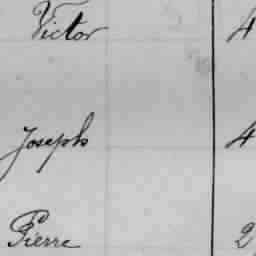 Victor 4
Joseph 4
Pierre 2